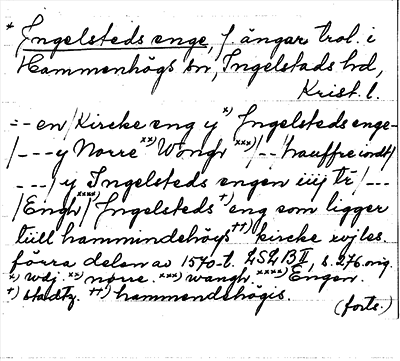 * Ingelsteds enge, f. ängar trol. i
Hammenhögs sn, Ingelstads hd,
Krist. l.
=- en/Kircke eng y x) Ingelsteds enge-
/---y Norre xx) Wongh xxx)/--/hauffre iordt/
---/y Ingelsteds engen iiij tr/---
/Engh xxxx)/ Ingelsteds +) eng som ligger
tiill hammindehöys ++) kircke
förra delen av 1570-t. LSLB II, s. 276. orig.
x) vdj. xx) nørre. xxx) wangh. xxxx) Engen.
+) stadtz. ++) hammendehögis.
(forts.)